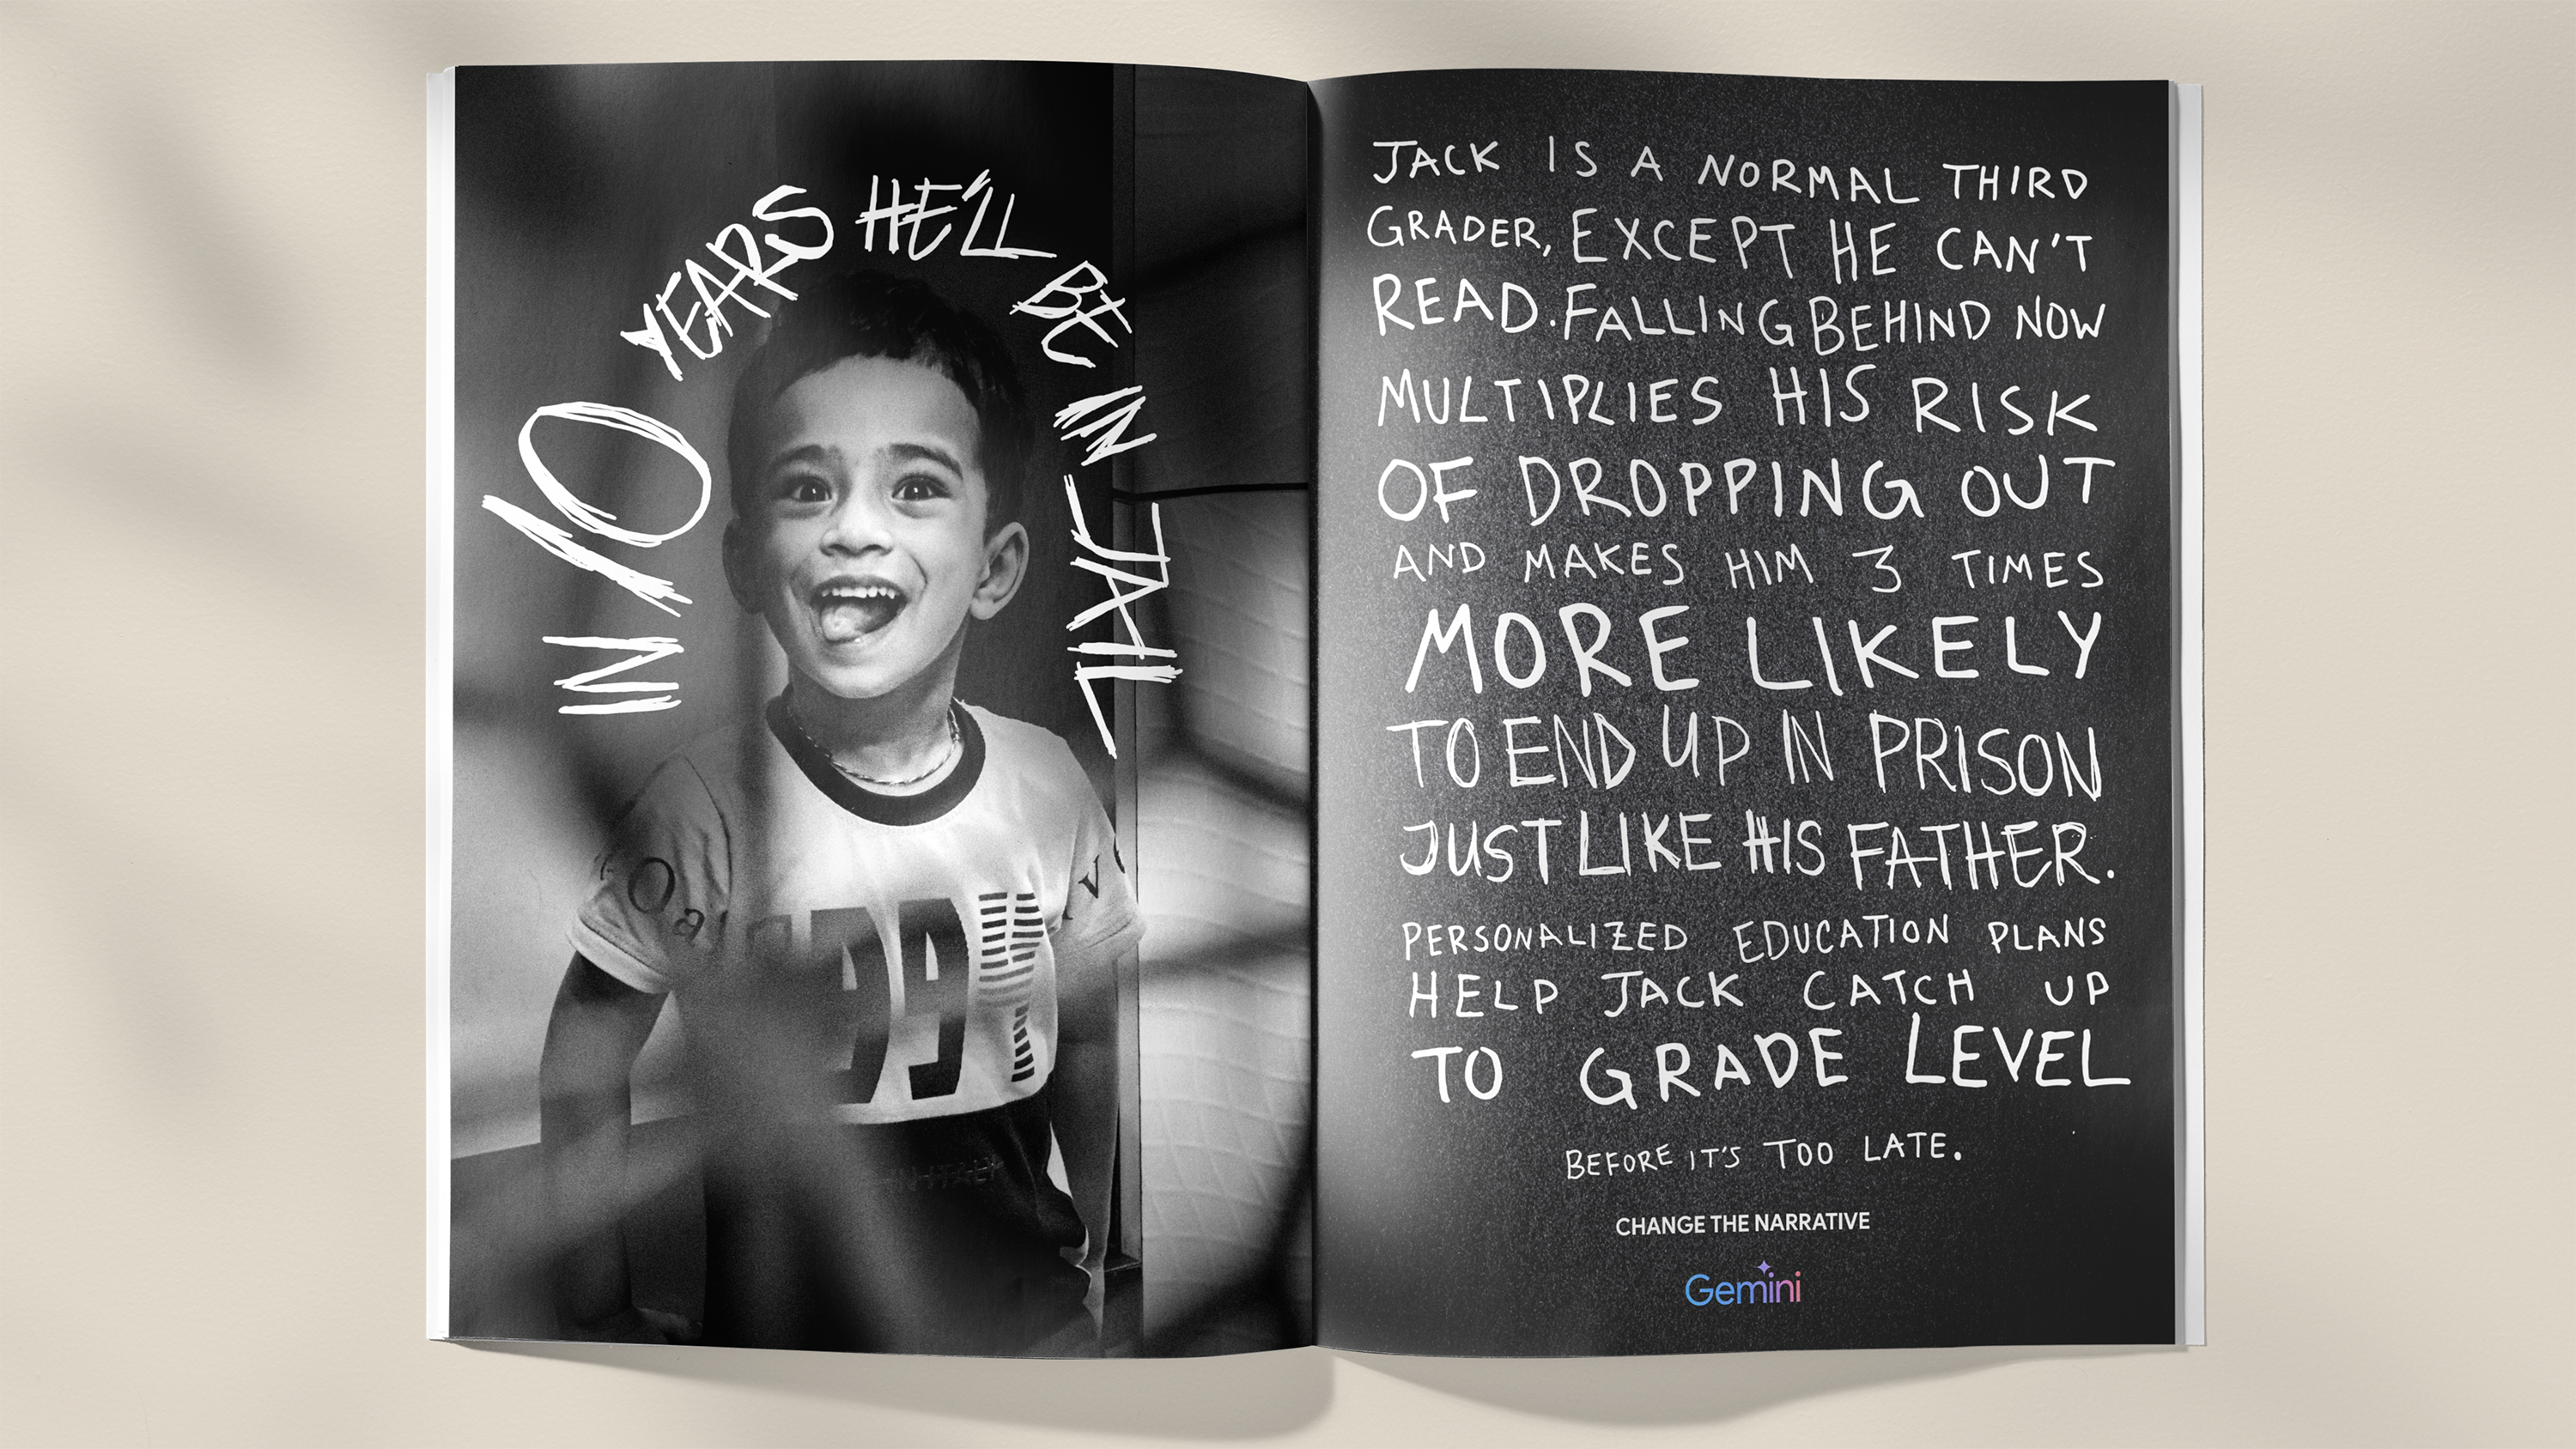 IN 10 YEARS HE'LL BE IN JAIL
JACK IS A NORMAL THIRD
GRADER, EXCEPT HE CAN'T
READ. FALLING BEHIND NOW
MULTIPLIES HIS RISK
OF DROPPING OUT
AND MAKES HIM 3 TIMES
MORE LIKELY
TO END UP IN PRISON
JUST LIKE HIS FATHER.
PERSONALIZED EDUCATION PLANS
HELP JACK CATCH UP
TO GRADE LEVEL
BEFORE IT'S TOO LATE.
CHANGE THE NARRATIVE
Gemini